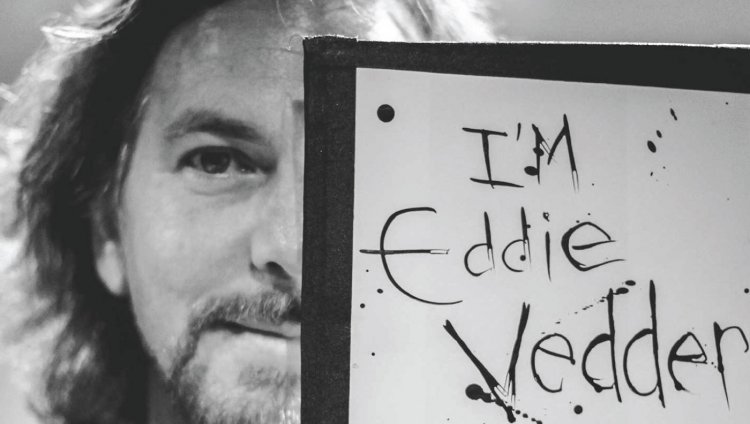 I'M
Eddie
Vedder